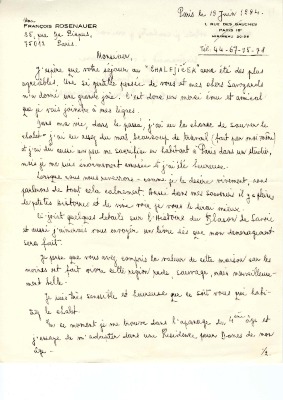 Mme
FRANÇOIS ROSENAUER
88, rue de Picpus,
75012 Paris
Paris le 19 Juin 1994.
1, RUE DES BAUCHES
PARIS 16e
Tél: 44-67-75-78
Monsieur,
J'espère que votre séjour au "CHALFJICEA" aura été des plus
agréables. Une si gentille pensée de vous et mes chers
m'a donné une grande joie. C'est donc un merci ému et amical
que je vais joindre à mes lignes.
Dans ma vie, dans le passé, j'ai eu la chance de sauver le
chalet - j'ai eu assez du mal, beaucoup de travail (fait par moi même)
et j'ai dû aussi un peu me sacrifier en habitant à Paris dans un studio,
mais je me suis énormément amusée et j'ai été heureuse.
Lorsque nous nous reverrons - comme je le désire vivement, nous
parlerons de tout cela calmement. Aussi dans mes souvenirs il y a pleins
de petites histoires et de vive voix je vous le dirai mieux.
Ci-joint quelques détails sur l'Histoire du Blason de Savoie
et aussi j'aimerais vous envoyer un livre dès que mon déménagement
sera fait.
Je pense que vous avez compris la valeur de cette maison car les
moines ont fait vivre cette région rude, sauvage, mais merveilleuse-
ment belle.
Je suis très sensible et heureuse que ce soit vous qui habi-
tiez le chalet.
En ce moment je me trouve dans l'apanage du 4ème âge et
j'essaye de m'adapter dans une Résidence pour Dames de mon
âge.
1/2